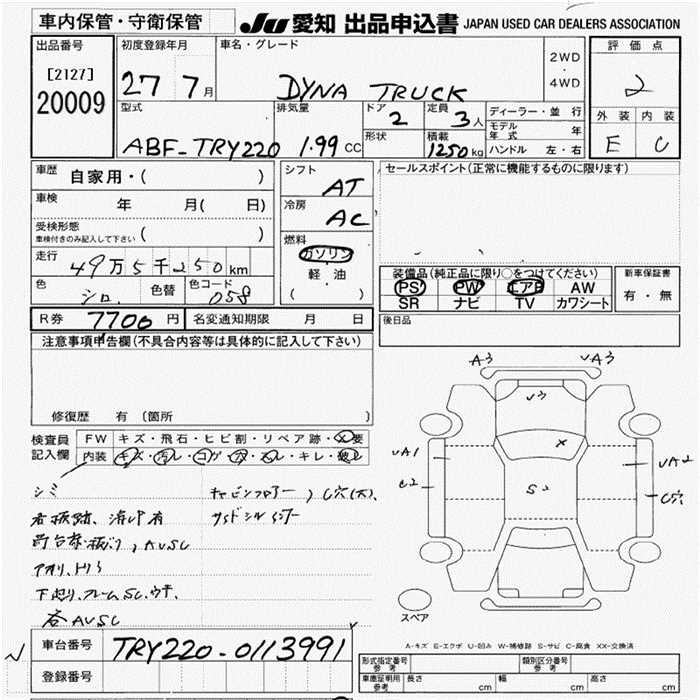 車内保管・守衛保管
JU 愛知 出品申込書 JAPAN USED CAR DEALERS ASSOCIATION
出品番号
[2127]
20009
初度登録年月
27 7月
車名・グレード
DYNA TRUCK
2WD
・
4WD
評価点
2
外装 内装
E C
型式
ABF-TRY220
排気量
1.99 CC
ドア
2
形状
定員
3人
積載
1250kg
ディーラー・並行
モデル年式 年
ハンドル 左・右
車歴
自家用・( )
車検
年 月( 日)
受検形態
車検付きのみ記入して下さい ( )
走行
49万5千250km
色
シロ
色替
色コード
058
シフト
AT
冷房
AC
燃料
ガソリン
軽・油
( )
セールスポイント(正常に機能するものに限ります)
装備品(純正品に限り○をつけてください)
PS PW エアB AW
SR ナビ TV カワシート
新車保証書
有・無
後日品
R券 7700円 名変通知期限 月 日
注意事項申告欄(不具合内容等は具体的に記入して下さい)
修復歴 有 (箇所 )
検査員
記入欄
FW キズ・飛石・ヒビ割・リペア跡・×要
内装 キズ・汚レ・コゲ・穴・スレ・キレ・破レ
シミ
キャビンフロアー, C穴(大),
看板跡、
アオリ、トリイ
下廻り、フレームSC、
各AVSC
A3 VA3
V3
×
VA1
VA2
C2
S2
C穴
スペア
車台番号
TRY220-0113991
登録番号
A-キズ E-エクボ U-凹み W-補修跡 S-サビ C-腐食 XX-交換済
形式指定番号
参考
類別区分番号
参考
車庫証明用
参考
長さ cm 幅 cm 高さ cm